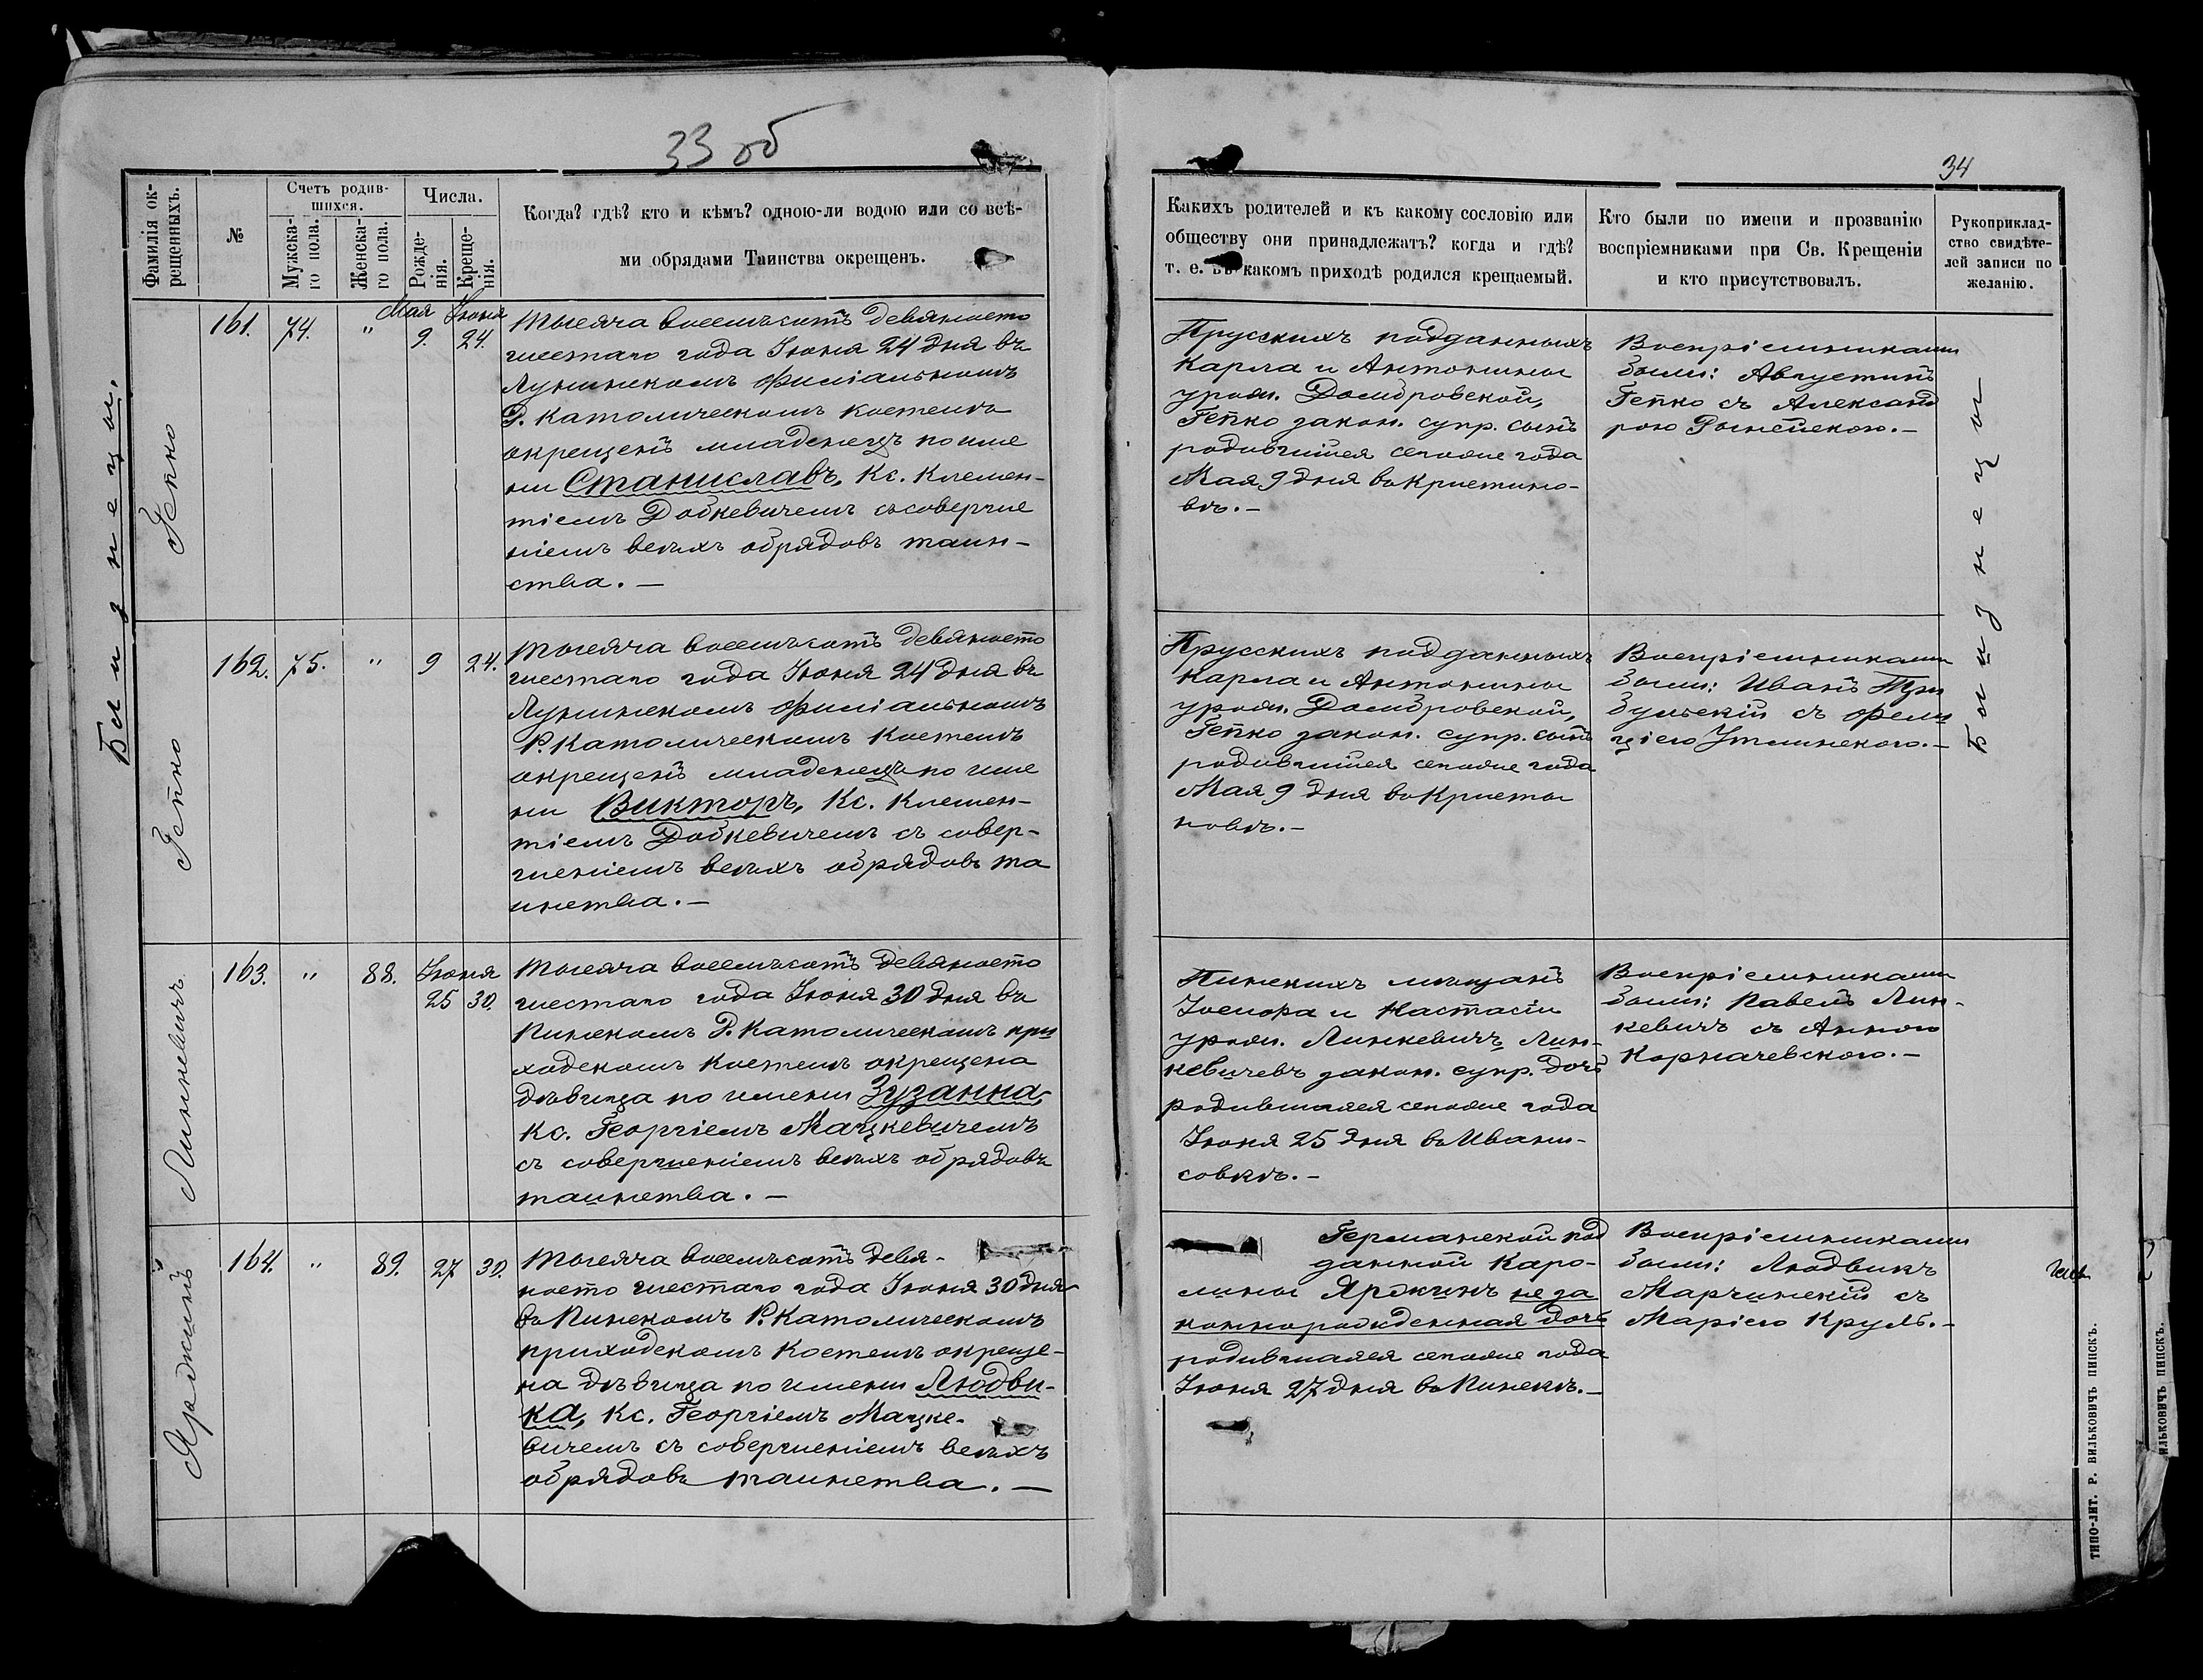 33 об
34
Фамилія ок-
рещенныхъ.
№
Счетъ родив-
шихся.
Мужска-
го пола.
Женска-
го пола.
Числа.
Рожде-
нія.
Креще-
нія.
Когда? гдѣ? кто и кѣмъ? одною-ли водою или со всѣ-
ми обрядами Таинства окрещенъ.
Какихъ родителей и къ какому сословію или
обществу они принадлежатъ? когда и гдѣ?
т. е. въ какомъ приходѣ родился крещаемый.
Кто были по имени и прозванію
воспріемниками при Св. Крещеніи
и кто присутствовалъ.
Рукоприклад-
ство свидѣте-
лей записи по
желанію.
Близнецы.
Гепко
161.
74.
"
Мая
9.
Іюня
24.
Тысяча восемьсотъ девяносто
шестаго года Іюня 24 дня въ
Лунинскомъ Филіальномъ
Р. Католическомъ Костелѣ
окрещенъ младенецъ по име
ни Станиславъ, Кс. Клемен-
тіемъ Добкевичемъ съ соверше
ніемъ всѣхъ обрядовъ таин-
ства. —
Прусскихъ подданныхъ
Карла и Антонины
урожд. Домбровской,
Гепко закон. супр. сынъ
родившійся сего же года
Мая 9 дня въ Кристино-
вѣ. —
Воспріемниками
были: Августинъ
Гепко съ Александ
рою
Близнецы
Гепко
162.
75.
"
9
24.
Тысяча восемьсотъ девяносто
шестаго года Іюня 24 дня въ
Лунинскомъ Филіальномъ
Р. Католическомъ Костелѣ
окрещенъ младенецъ по име
ни Викторъ, Кс. Клемен-
тіемъ Добкевичемъ съ совер-
шеніемъ всѣхъ обрядовъ та
инства. —
Прусскихъ подданныхъ
Карла и Антонины
урожд. Домбровской,
Гепко закон. супр. сынъ
родившійся сего же года
Мая 9 дня въ Кристы
новѣ. —
Воспріемниками
были: Иванъ
съ Фели
ціею
Линкевичъ
163.
"
88.
Іюня
25
30.
Тысяча восемьсотъ девяносто
шестаго года Іюня 30 дня въ
Пинскомъ Р. Католическомъ при
ходскомъ Костелѣ окрещена
дѣвица по имени Зузанна,
Кс. Георгіемъ Мацкевичемъ
съ совершеніемъ всѣхъ обрядовъ
таинства. —
Пинскихъ мѣщанъ
Іосифа и Настасіи
урожд. Линкевичъ Лин-
кевичевъ закон. супр. дочь
родившаяся сего же года
Іюня 25 дня въ Ивани-
совкѣ. —
Воспріемниками
были: Павелъ Лин-
кевичъ съ Анною
Корначевскою. —
Ярджинъ
164.
"
89.
27
30.
Тысяча восемьсотъ девя-
носто шестаго года Іюня 30 дня
въ Пинскомъ Р. Католическомъ
приходскомъ Костелѣ окреще-
на дѣвица по имени Людви-
ка, Кс. Георгіемъ Мацке-
вичемъ съ совершеніемъ всѣхъ
обрядовъ таинства. —
Германской под
данной Каро-
лины Ярджинъ неза
коннорожденная дочь
родившаяся сего же года
Іюня 27 дня въ Пинскѣ. —
Воспріемниками
были: Людвикъ
Марчинскій съ
Маріею Круль. —
ТИПО-ЛИТ. Р. ВИЛЬКОВИЧЪ ПИНСКЪ.
ИЛЬКОВИЧЪ ПИНСКЪ.